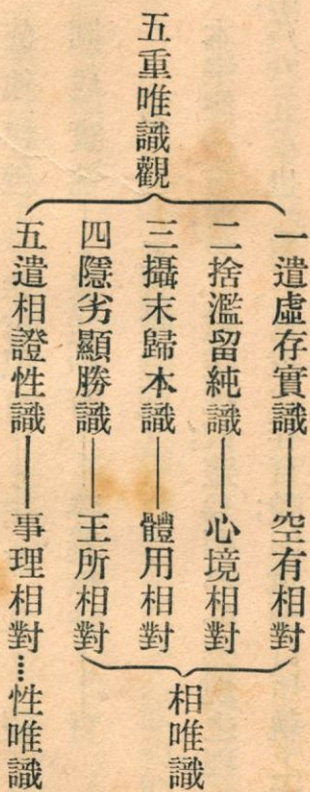 五重唯識觀
一遣虛存實識——空有相對
二捨濫留純識——心境相對
三攝末歸本識——體用相對
四隱劣顯勝識——王所相對
相唯識
五遣相證性識——事理相對……性唯識